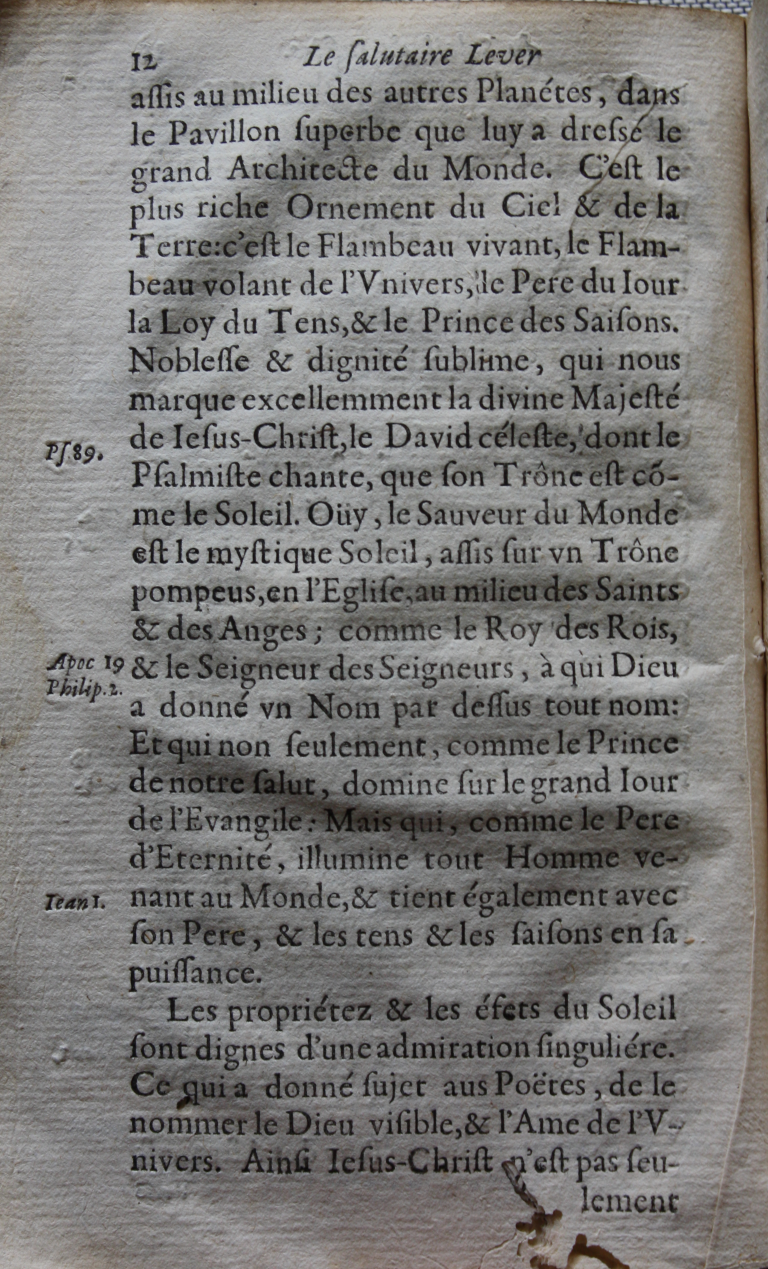 12 Le ſalutaire Lever
aſſis au milieu des autres Planétes, dans
le Pavillon ſuperbe que luy a dreſsé le
grand Architecte du Monde. C'eſt le
plus riche Ornement du Ciel & de la
Terre: c'eſt le Flambeau vivant, le Flam-
beau volant de l'Vnivers, le Pere du Iour
la Loy du Tens, & le Prince des Saiſons.
Nobleſſe & dignité ſublime, qui nous
marque excellemment la divine Majeſté
de Ieſus-Chriſt, le David céleſte, dont le
Pſ 89.
Pſalmiſte chante, que ſon Trône eſt cõ-
me le Soleil. Oüy, le Sauveur du Monde
eſt le myſtique Soleil, aſſis ſur vn Trône
pompeus, en l'Egliſe, au milieu des Saints
& des Anges; comme le Roy des Rois,
Apoc 19
& le Seigneur des Seigneurs, à qui Dieu
Philip. 2.
a donné vn Nom par deſſus tout nom:
Et qui non ſeulement, comme le Prince
de notre ſalut, domine ſur le grand Iour
de l'Evangile: Mais qui, comme le Pere
d'Eternité, illumine tout Homme ve-
Iean 1.
nant au Monde, & tient également avec
ſon Pere, & les tens & les ſaiſons en ſa
puiſſance.
Les propriétez & les éfets du Soleil
ſont dignes d'une admiration ſinguliére.
Ce qui a donné ſujet aus Poëtes, de le
nommer le Dieu viſible, & l'Ame de l'V-
nivers. Ainſi Ieſus-Chriſt n'eſt pas ſeu-
lement